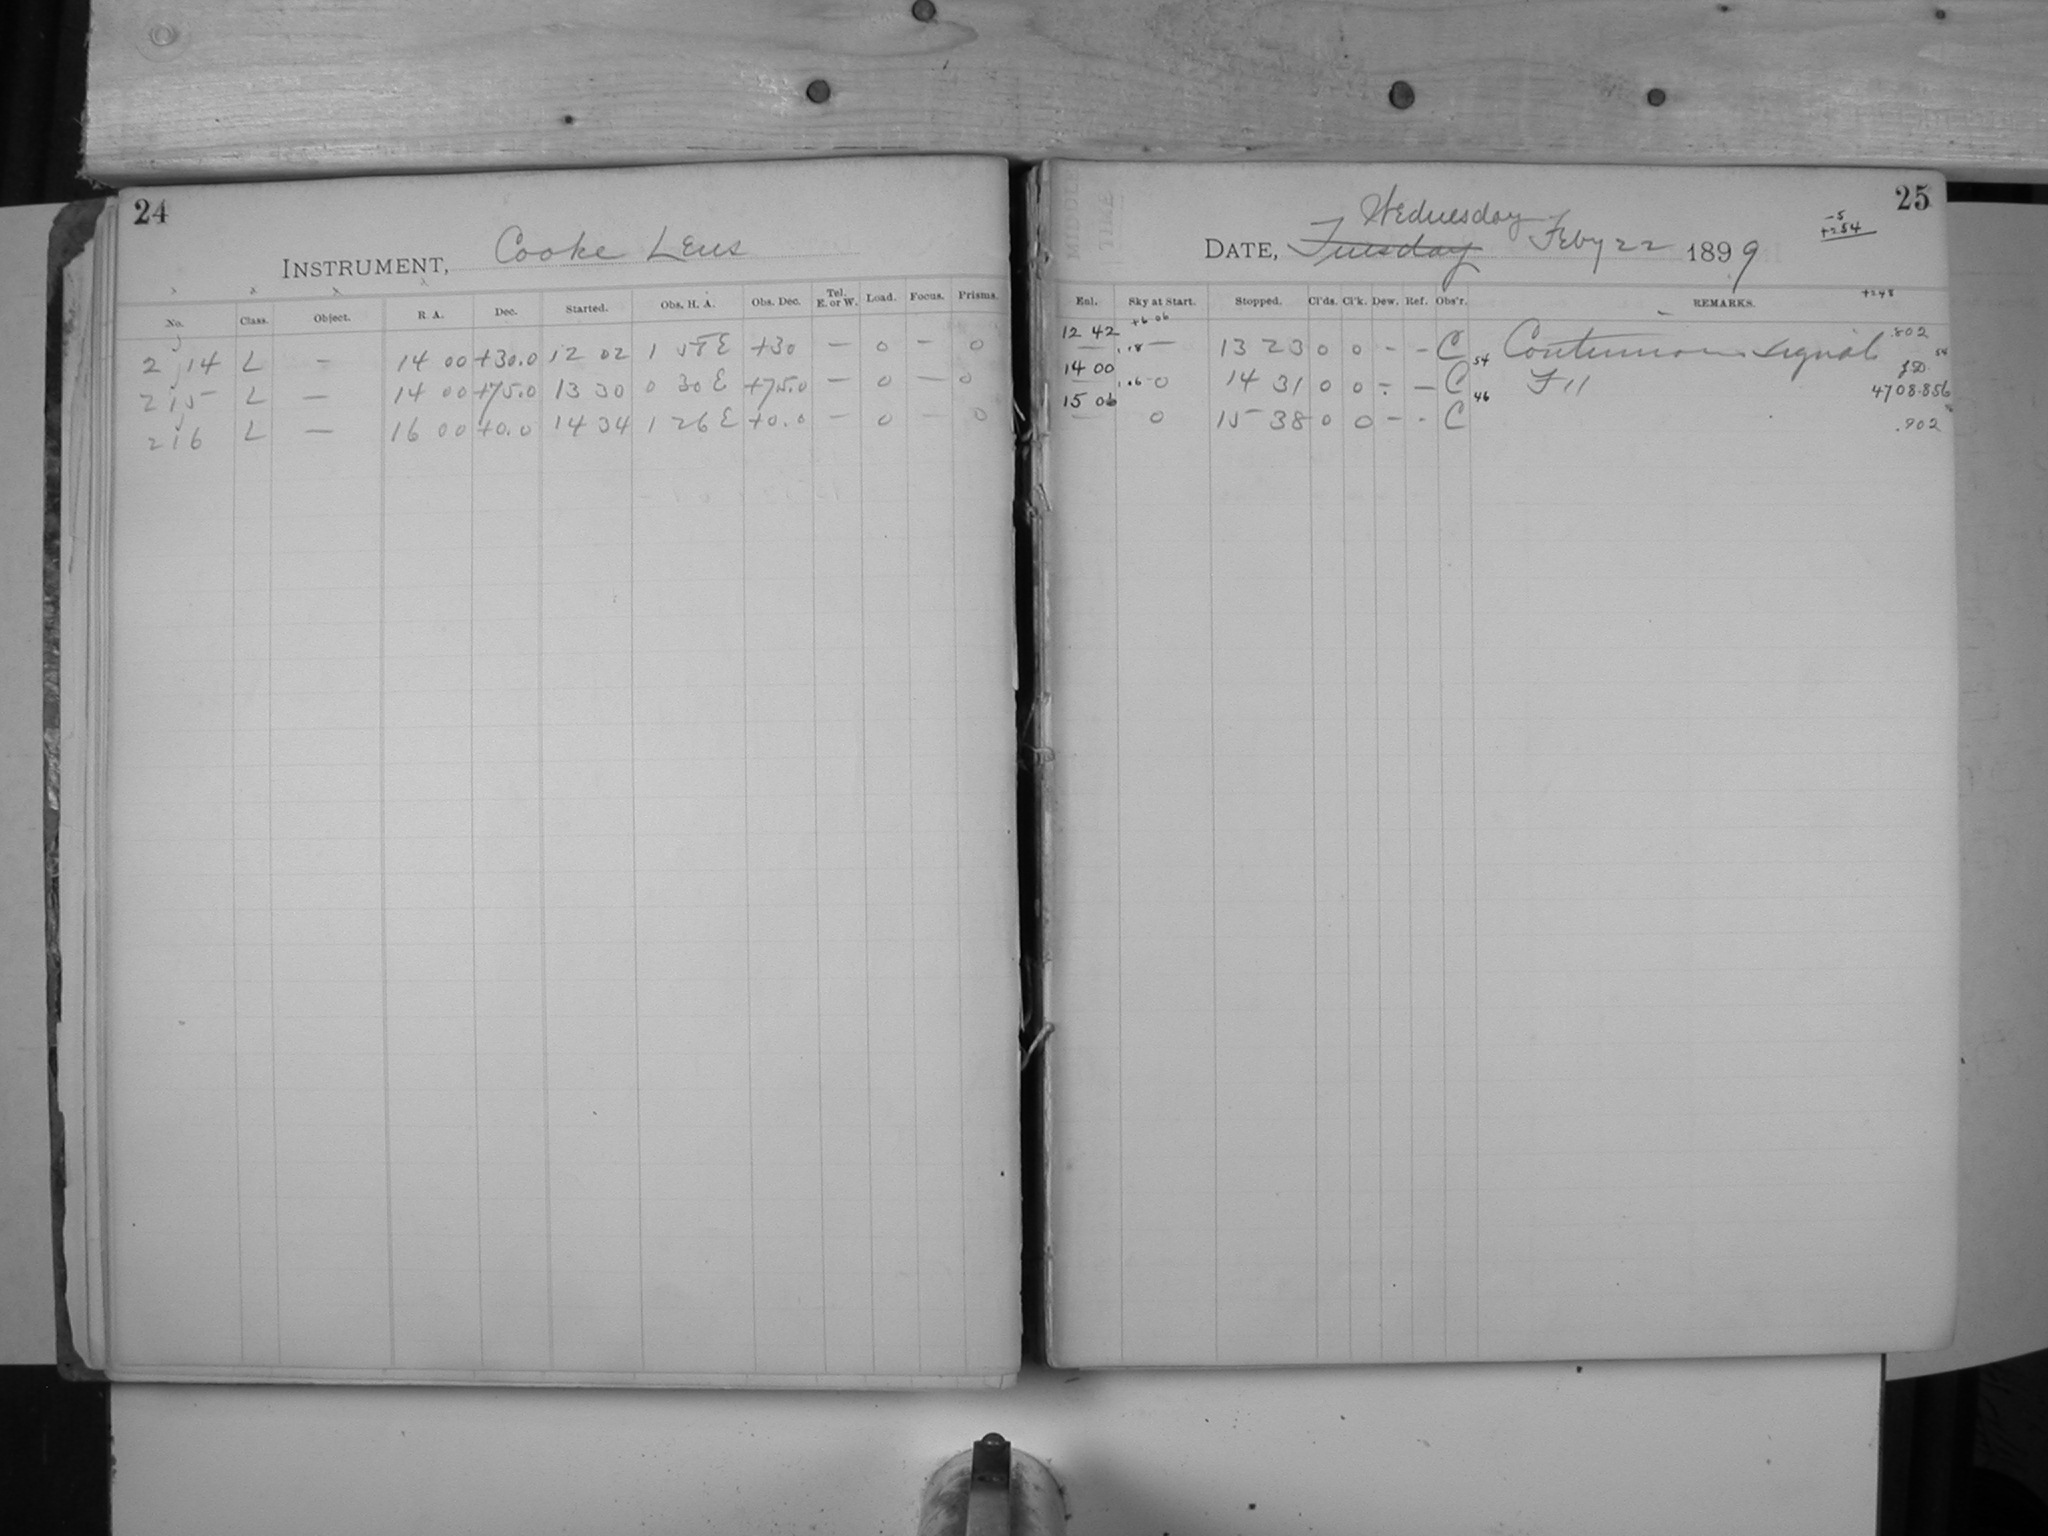 24
INSTRUMENT, Cooke Lens
No. Class. Object. R. A. Dec. Started. Obs. H. A. Obs. Dec. Tel. E. or W. Load. Focus. Prisms.
214 L — 14 00 +30.0 12 02 1 58 E +30 — 0 — 0
215 L — 14 00 +75.0 13 30 0 30 E +75.0 — 0 — 0
216 L — 16 00 +0.0 14 34 1 26 E +0.0 — 0 — 0
25
Wednesday
-5
+254
DATE, Tuesday Feby 22 1899
+248
Eal. Sky at Start. Stopped. Cl'ds. Cl'k. Dew. Ref. Obs'r. REMARKS.
+6 06
12 42 .18 — 13 23 0 0 - - C 54 Continuous signal .802
14 00 .06 0 14 31 0 0 - — C 46 F 11 J.D. 4708.856
15 06 — 0 15 38 0 0 - - C .902